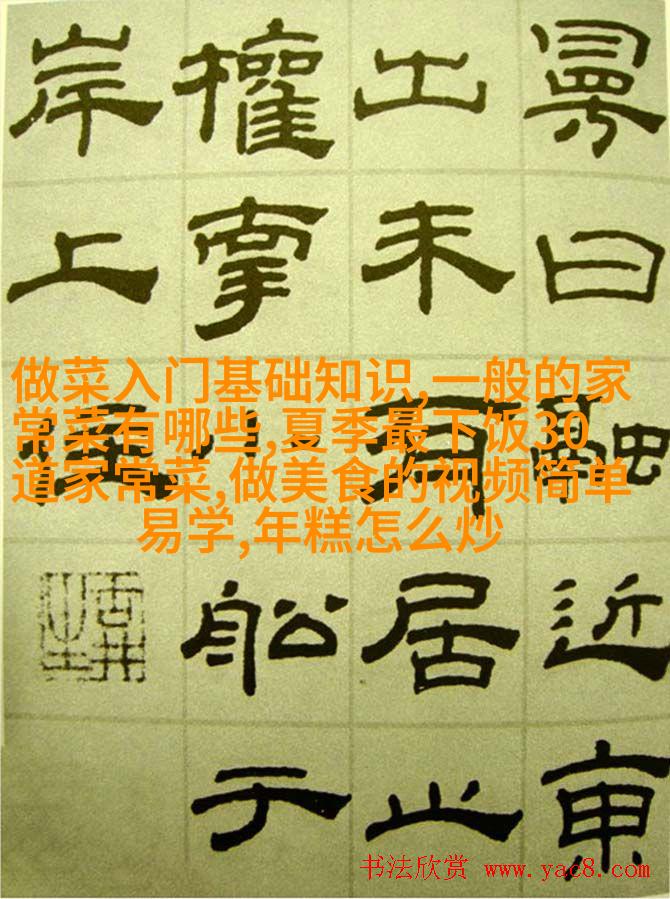 曼曰融近東
出未有居止
權牽小舩于
岸上住
做菜入门基础知识,一般的家
常菜有哪些,夏季最下饭30
道家常菜,做美食的视频简单
易学,年糕怎么炒
书法欣赏 www.yac8.com